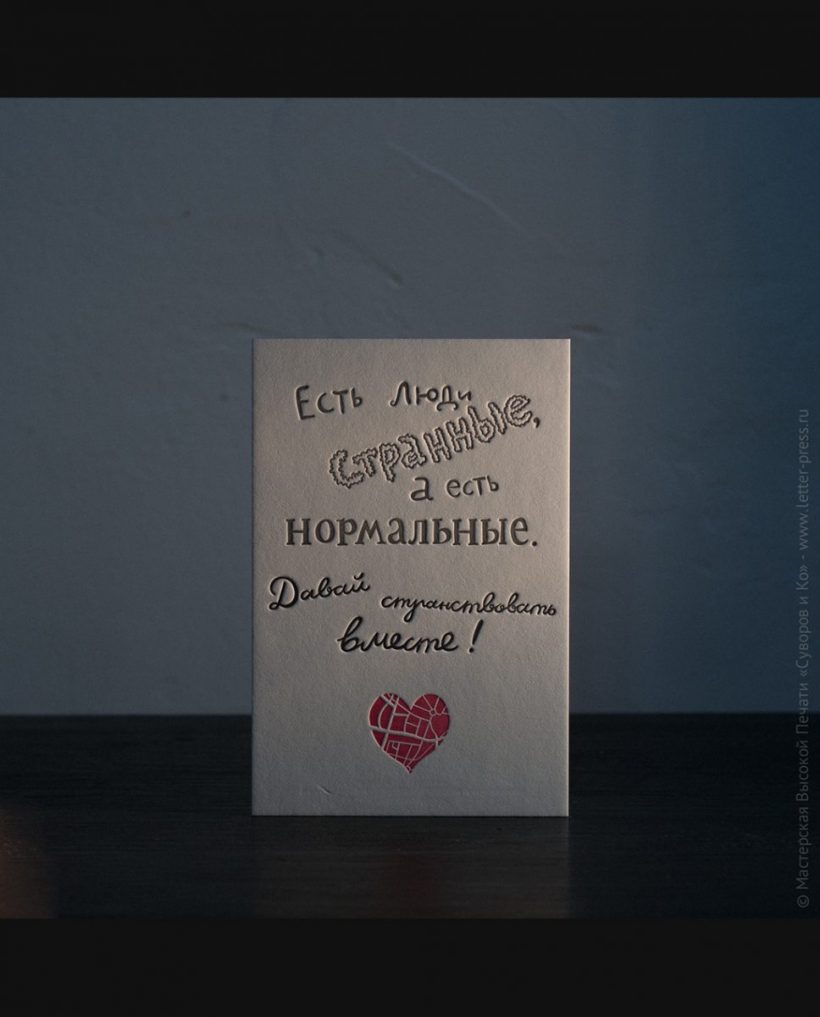 Есть люди
странные,
а есть
нормальные.
Давай странствовать
вместе!
© Мастерская Высокой Печати «Суворов и Ко» - www.letter-press.ru